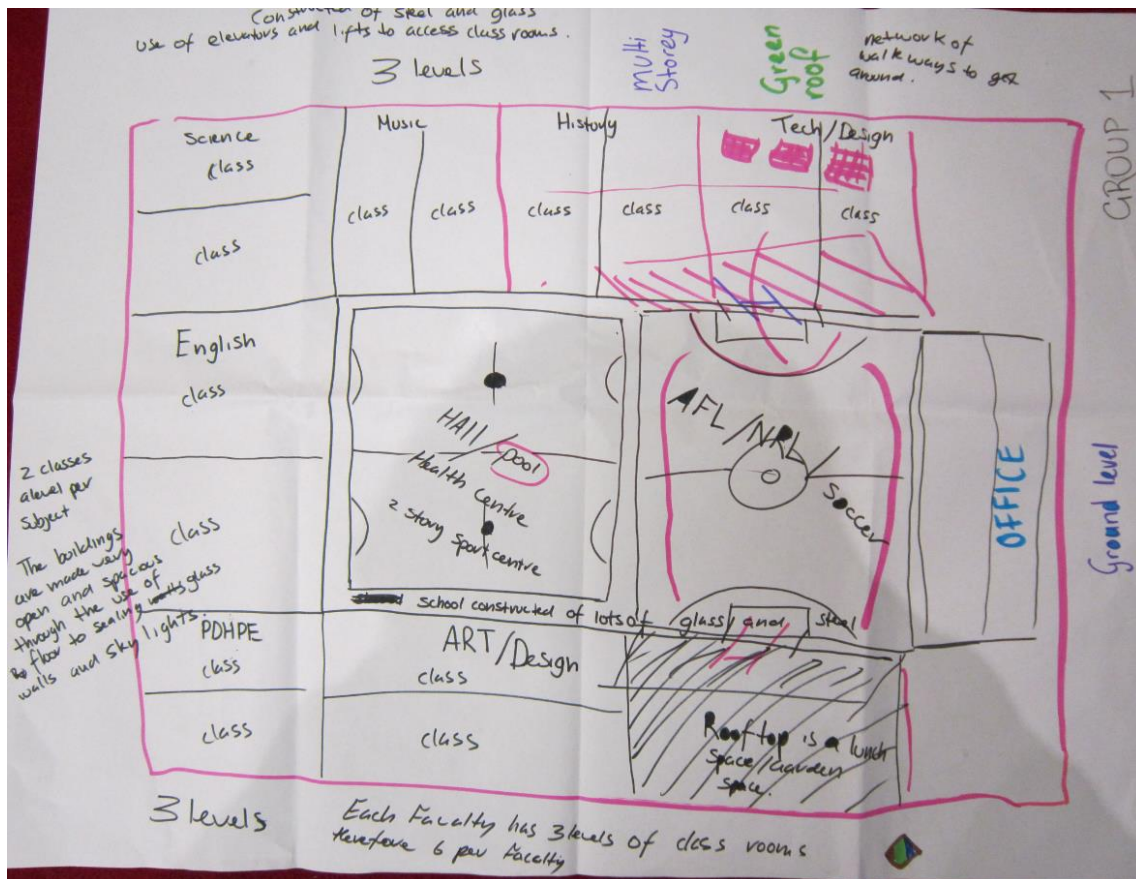 Constructed of steel and glass
use of elevators and lifts to access class rooms.
3 levels
multi
Storey
Green
roof
network of
walk ways to get
around.
GROUP 1
Science
class
class
Music
class
class
History
class
class
Tech/Design
class
class
English
class
class
HAll/pool
Health centre
2 story sport centre
AFL/NRL
Soccer
OFFICE
Ground level
2 classes
a level per
subject
The buildings
are made very
open and spacious
through the use of
floor to sealing glass
walls and sky lights.
school constructed of lots of glass and steel
PDHPE
class
class
ART/Design
class
class
Rooftop is a lunch
space/Garden
space.
3 levels
Each Facalty has 3 levels of class rooms
therefore 6 per Facalty